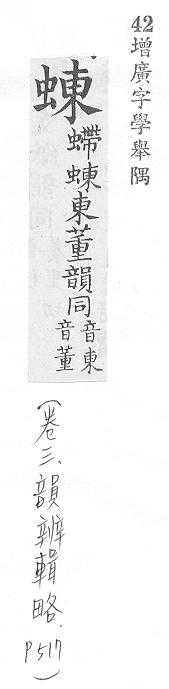 42增廣字學舉隅
蝀
螮蝀東董韻同音東音董
(卷三、韻辨輯略. P517)